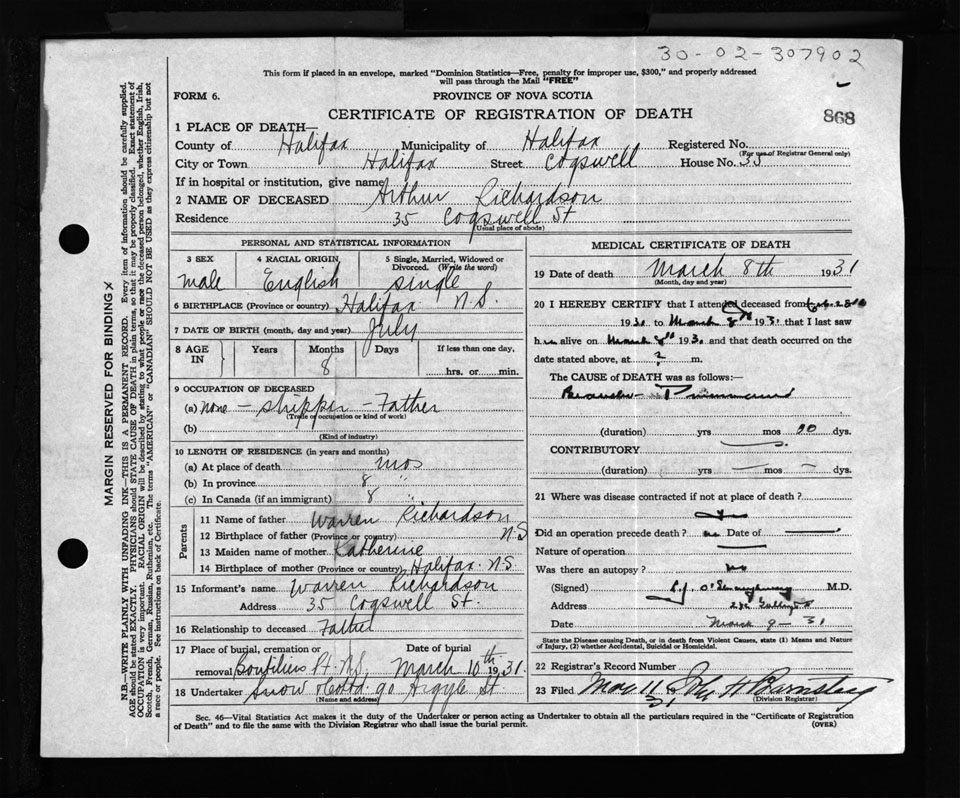 30-02-307902
This form if placed in an envelope, marked "Dominion Statistics—Free, penalty for improper use, $300," and properly addressed
will pass through the Mail "FREE"
FORM 6.
PROVINCE OF NOVA SCOTIA
CERTIFICATE OF REGISTRATION OF DEATH
868
1 PLACE OF DEATH—
County of Halifax Municipality of Halifax Registered No.
(For use of Registrar General only)
City or Town Halifax Street Cogswell House No. 35
If in hospital or institution, give name
2 NAME OF DECEASED Arthur Richardson
Residence 35 Cogswell St
(Usual place of abode)
PERSONAL AND STATISTICAL INFORMATION
3 SEX
male
4 RACIAL ORIGIN
English
5 Single, Married, Widowed or Divorced. (Write the word)
single
6 BIRTHPLACE (Province or country) Halifax N.S.
7 DATE OF BIRTH (month, day and year) July
8 AGE IN
Years Months Days If less than one day,
8 hrs. or min.
9 OCCUPATION OF DECEASED
(a) none - shipper - Father
(Trade or occupation or kind of work)
(b)
(Kind of industry)
10 LENGTH OF RESIDENCE (in years and months)
(a) At place of death mos
(b) In province 8 "
(c) In Canada (if an immigrant) 8 "
Parents
11 Name of father Warren Richardson
12 Birthplace of father (Province or country) N.S
13 Maiden name of mother Katherine
14 Birthplace of mother (Province or country) Halifax N.S
15 Informant's name Warren Richardson
Address 35 Cogswell St.
16 Relationship to deceased Father
17 Place of burial, cremation or Date of burial
removal Boutiliers Pt. N.S. March 10th 1931.
18 Undertaker Snow & Co Ltd. 90 Argyle St
(Name and address)
MEDICAL CERTIFICATE OF DEATH
19 Date of death March 8th 1931
(Month, day and year)
20 I HEREBY CERTIFY that I attended deceased from Feb. 28th
1931 to March 8th 1931 that I last saw
him alive on March 8th 1931 and that death occurred on the
date stated above, at ? m.
The CAUSE of DEATH was as follows:—
Broncho - Pneumonia
(duration) yrs mos dys.
CONTRIBUTORY
(duration) yrs — mos — dys.
21 Where was disease contracted if not at place of death?
Did an operation precede death? no Date of
Nature of operation
Was there an autopsy? no
(Signed) M.D.
Address
Date March 9 - 31
State the Disease causing Death, or in death from Violent Causes, state (1) Means and Nature of Injury, (2) whether Accidental, Suicidal or Homicidal.
22 Registrar's Record Number
23 Filed Mar 11 31
(Division Registrar)
Sec. 46—Vital Statistics Act makes it the duty of the Undertaker or person acting as Undertaker to obtain all the particulars required in the "Certificate of Registration
of Death" and to file the same with the Division Registrar who shall issue the burial permit.
(OVER)
MARGIN RESERVED FOR BINDING
N.B.—WRITE PLAINLY WITH UNFADING INK—THIS IS A PERMANENT RECORD. Every item of information should be carefully supplied.
AGE should be stated EXACTLY. PHYSICIANS should STATE CAUSE OF DEATH in plain terms, so that it may be properly classified. Exact statement of
OCCUPATION is very important. RACIAL ORIGIN will be described by stating to what people or race the deceased person belonged, whether English, Irish,
Scotch, French, German, Russian, Ruthenian, etc. The terms "AMERICAN" or "CANADIAN" SHOULD NOT BE USED as they express citizenship but not
a race or people. See instructions on back of Certificate.